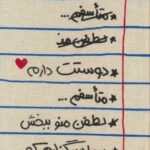 *متأسفم...
*لطفن منو
*دوستت دارم
*متأسفم...
*لطفن منو ببخش